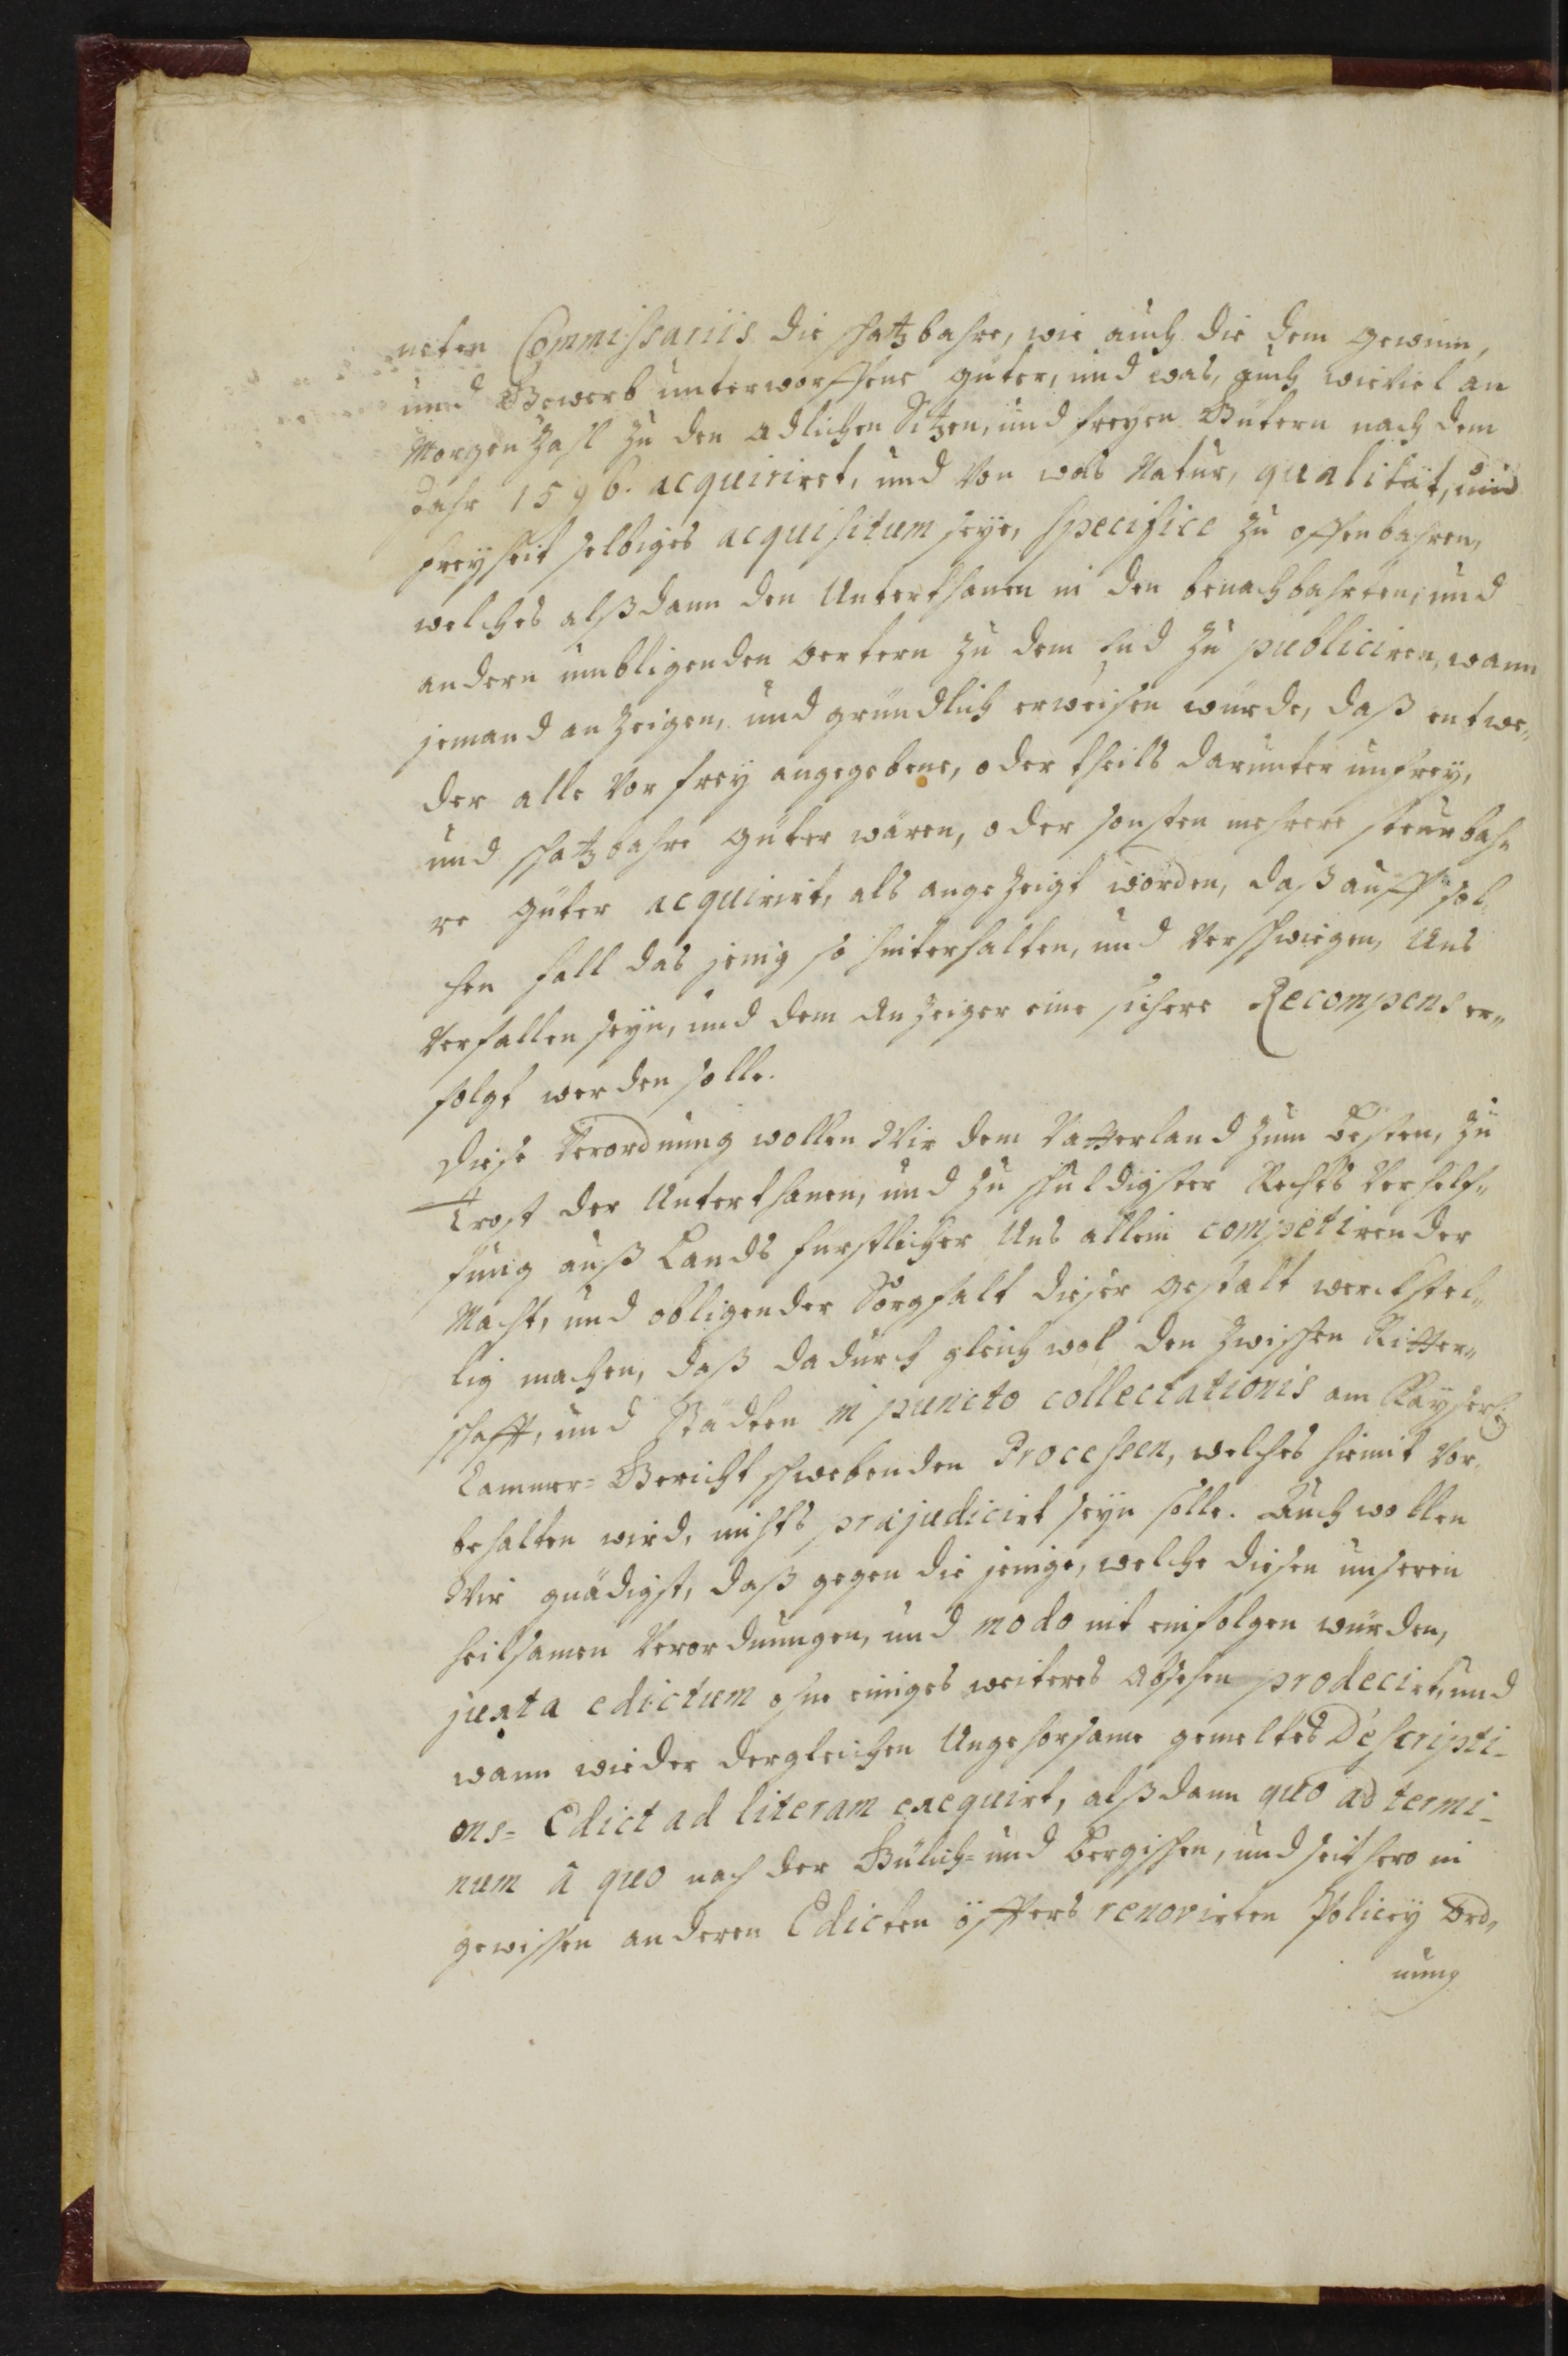 neten Commissariis die schatzbahre, wie auch die dem gewinn,
und Gewerb unterworffene güter, und was, auch wieviel an
Morgenzahl zu den adlichen Sitzen, und freyen Gütern nach dem
Jahr 1596. acquiriret, und von was Natur, qualität, und
freyheit selbiges acquisitum seye, specifice zu offenbahren,
welches alßdann den Unterthanen in den benachbahrten, und
andern umbligenden oertern zu dem End zu publiciren, wann
jemand anzeigen, und gründlich erweisen würde, daß entwe„
der alle vor frey angegebene, oder theils darunter unfrey,
und schatzbahre güter wären, oder sonsten mehrere steurbah„
re güter acquirirt, als angezeigt worden, daß auff sol„
chen fall das jenig so hinterhalten, und verschwiegen, Uns
verfallen seyn, und dem anzeiger eine sichere Recompens er„
folgt werden solle.
Diese Verordnung wollen Wir dem Vatterland zum besten, zu
Trost der Unterthanen, und zu schuldigster Rechts Verhelf„
fung auß Lands furstlicher Uns allein competirender
Macht, und obligender Sorgfalt dieser gestalt werckstel„
lig machen, daß dadurch gleichwol den zwischen Ritter„
schafft, und Städten in puncto collectationis am Kayserl:
Cammer=Gericht schwebenden Processen, welches hiemit vor„
behalten wird, nichts präjudicirt seyn solle. Auch wollen
Wir gnädigst, daß gegen die jenige, welche diesen unseren
heilsamen Verordnungen, und modo nit einfolgen würden,
juxta edictum ohne einiges weiteres absehen prodecirt, und
wann wieder dergleichen Ungehorsame gemeltes Descripti-
ons= Edict ad literam exequirt, alßdann quo ad termi-
num â quo nach der Gülich= und bergischen, und seithero in
gewissen anderen Edicten öffters renovirten Policey Ord„
nung